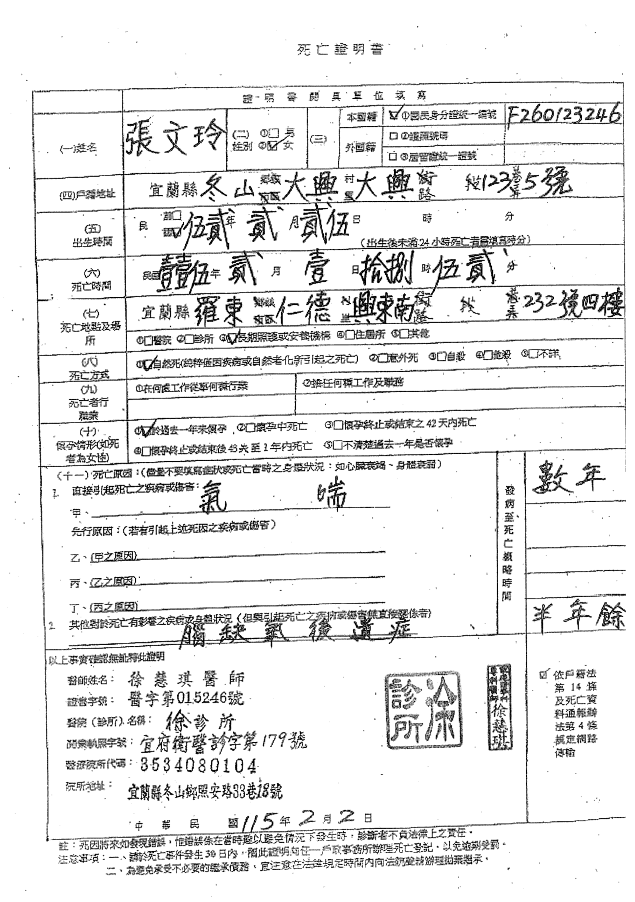 死亡證明書
證明書開具單位填寫
(一)姓名 張文玲 (二)性別 ①□男 ②☑女 (三) 本國籍 ☑①國民身分證統一編號 F260123246
外國籍 □②護照號碼
□③居留證統一證號
(四)戶籍地址 宜蘭縣冬山鄉鎮市區大興村里大興街路 段 123巷弄5號
(五)出生時間 民 前□ 國☑ 伍貳年 貳月貳伍日 時 分
(出生後未滿24小時死亡者需填寫時分)
(六)死亡時間 民國壹壹伍年 貳月 壹日拾捌時伍貳分
(七)死亡地點及場所 宜蘭縣羅東鄉鎮市區仁德村里興東南街路 段 巷弄232號四樓
①□醫院 ②□診所 ③☑長期照護或安養機構 ④□住居所 ⑤□其他
(八)死亡方式 ①☑自然死(純粹僅因疾病或自然老化所引起之死亡) ②□意外死 ③□自殺 ④□他殺 ⑤□不詳
(九)死亡者行職業 ①在何處工作從事何種行業 ②擔任何種工作及職務
(十)懷孕情形(如死者為女性) ①☑於過去一年未懷孕 ②□懷孕中死亡 ③□懷孕終止或結束之42天內死亡
④□懷孕終止或結束後43天至1年內死亡 ⑤□不清楚過去一年是否懷孕
(十一)死亡原因:(儘量不要填寫症狀或死亡當時之身體狀況:如心臟衰竭、身體衰弱)
發病至死亡概略時間
1. 直接引起死亡之疾病或傷害:
甲、 氣喘 數年
先行原因:(若有引起上述死因之疾病或傷害)
乙、(甲之原因)
丙、(乙之原因)
丁、(丙之原因)
2. 其他對於死亡有影響之疾病或身體狀況(但與引起死亡之疾病或傷害無直接關係者)
腦缺氧後遺症 半年餘
以上事實確認無訛特此證明
醫師姓名: 徐慧琪醫師
證書字號: 醫字第015246號
醫院(診所)名稱: 徐診所
開業執照字號: 宜府衛醫診字第179號
醫療院所代碼: 3534080104
院所地址: 宜蘭縣冬山鄉照安路33巷18號
徐診所
徐慧琪
☑ 依戶籍法第14條及死亡資料通報辦法第4條規定網路傳輸
中華民國115年2月2日
註:死因將來如發現錯誤,惟錯誤係在當時難以避免情況下發生時,診斷者不負法律上之責任。
注意事項:一、請於死亡事件發生30日內,攜此證明向任一戶政事務所辦理死亡登記,以免逾期受罰。
二、為避免承受不必要的繼承債務,宜注意在法律規定時間內向法院聲請辦理拋棄繼承。